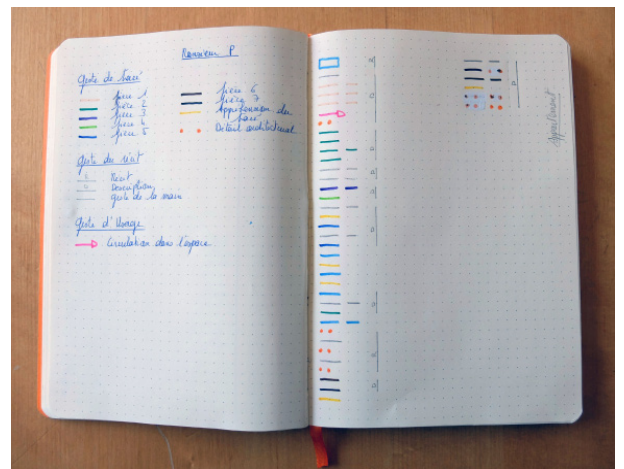 Monsieur P
Geste de tracé
pièce 1
pièce 2
pièce 3
pièce 4
pièce 5
pièce 6
pièce 7
Appréhension du tracé
Détail architectural
geste du récit
Récit
Description
geste de la main
geste d'Usage
Circulation dans l'espace
Appartement